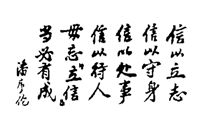 信以立志
信以守身
信以处事
信以待人
毋忘“立信”
当必有成
潘序伦